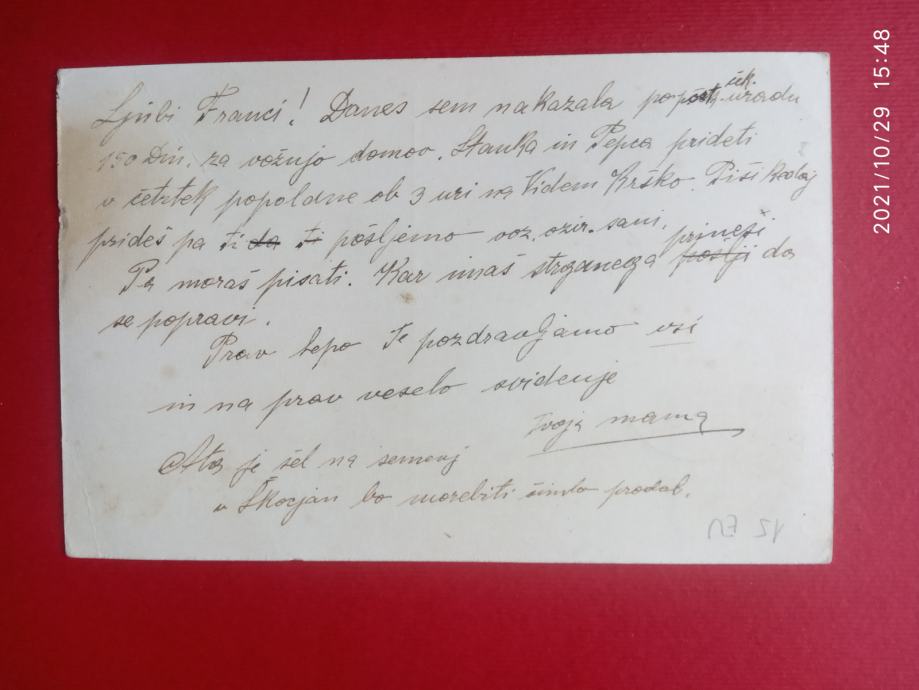 Ljubi Franci! Danes sem nakazala po pošt. ček. uradu
150 Din. za vožnjo domov. Stanka in Pepca prideti
v četrtek popoldne ob 3 uri na Videm Krško. Piši kedaj
prideš pa ti da ti pošljemo voz. ozir. sani.
Pa moraš pisati. Kar imaš strganega pošlji prinesi da
se popravi.
Prav lepo Te pozdravljamo vsi
in na prav veselo svidenje
tvoja mama
Ata je šel na semenj
v Škocjan bo morebiti prodal.
2021/10/29 15:48